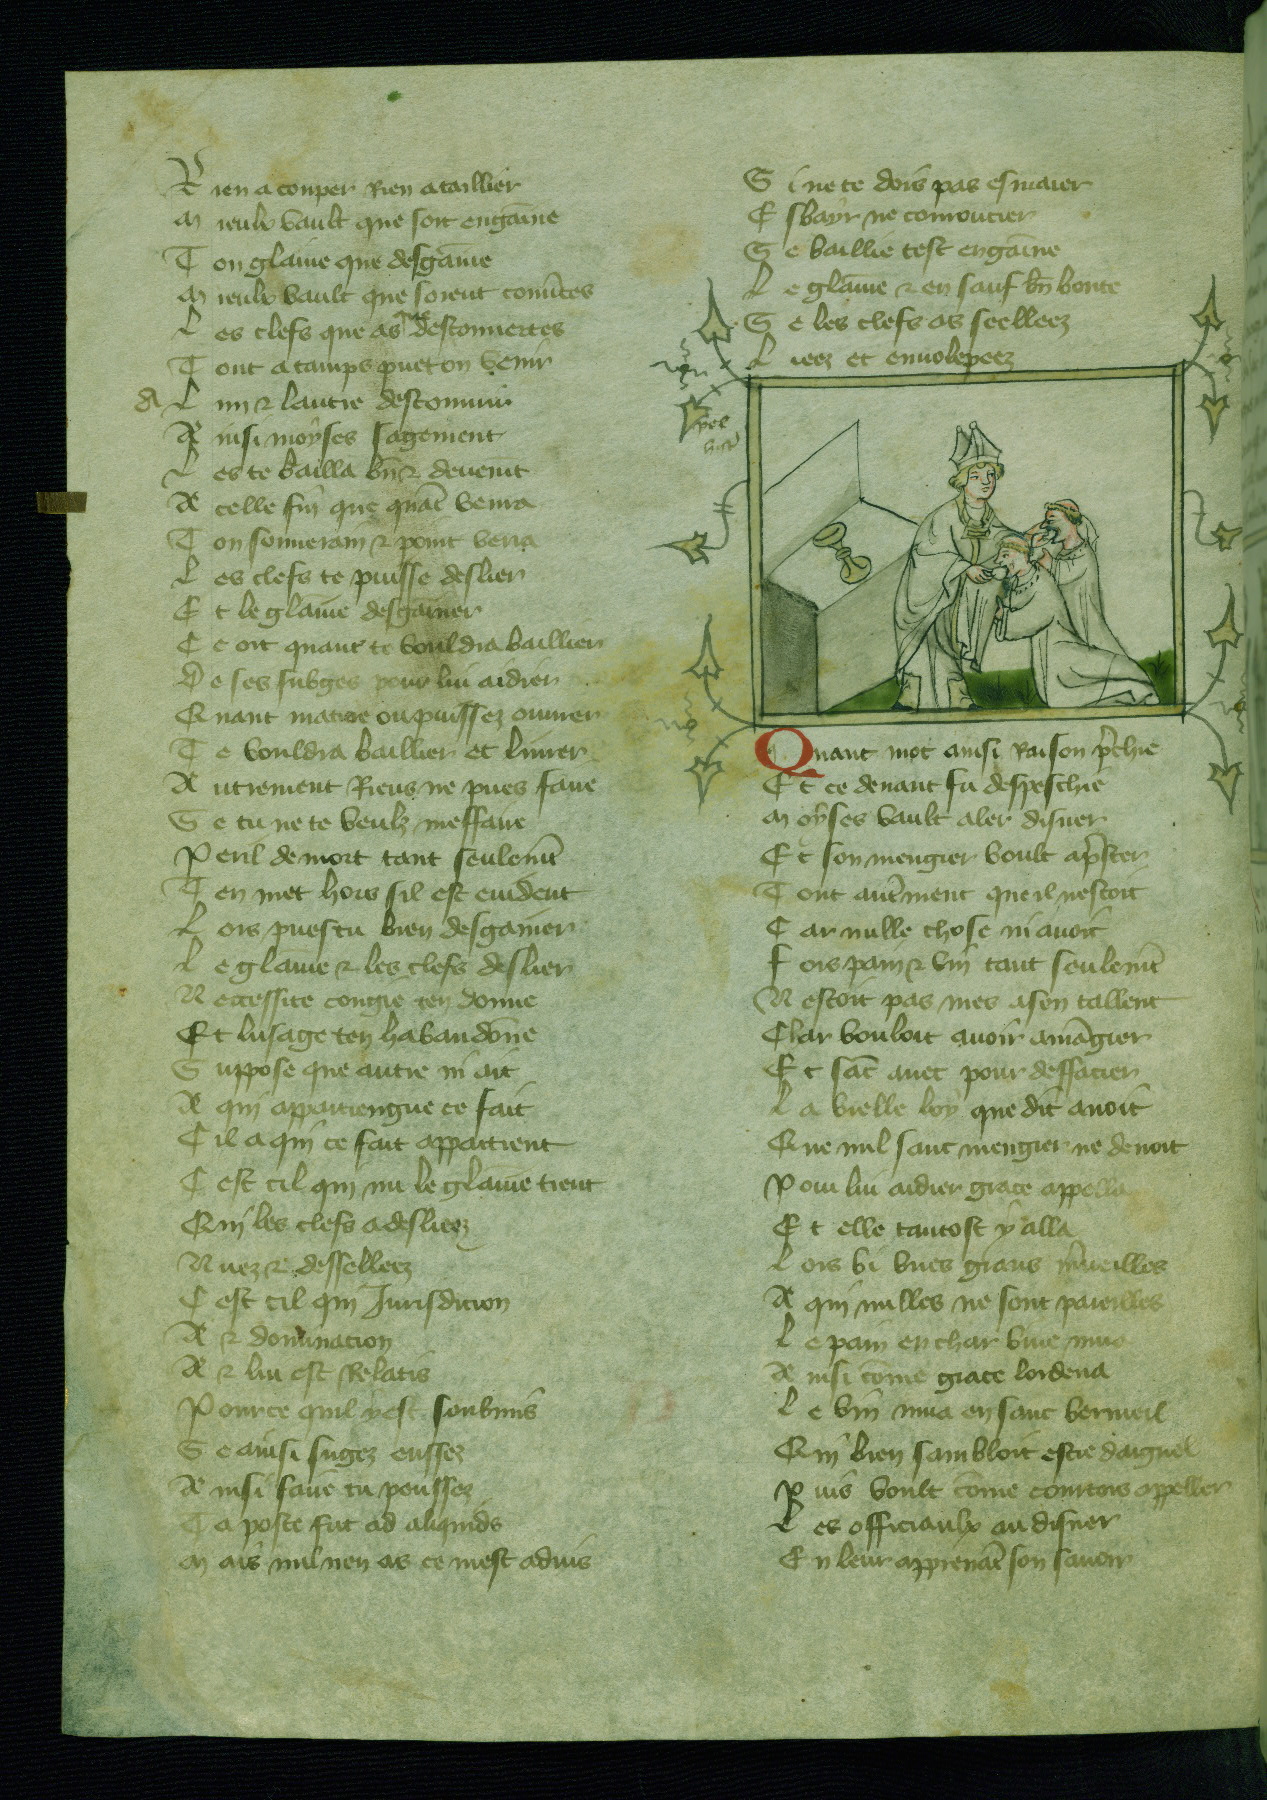 Rien a couper Rien a taillier
Mieulx vault que soit engaīne
Ton glaiue que desgaīne
Mieulx vault que soient couūtes
Les clefs que as descouuertes
Tout a tamps puet on venir
A Lun ⁊ lautre descouurir
Ainsi moyses sagement
Les te bailla bñ ⁊ deuemt
A celle fin que quāt venra
Ton souuerain ⁊ point verra
Les clefs te puisse deslier
Et le glaiue desgainer
Ce ert quant te vouldra baillier
De ses subges pour lui aidier
Quant matire ou puissez ouurer
Te vouldra baillier et liurer
Autrement Riens ne pues faire
Se tu ne te veulz meffaire
Peril de mort tant seulemt
Ten met hors sil est euident
Lors pues tu bien desgainer
Le glaiue ⁊ les clefs deslier
Neccessite congie ten donne
Et lusage ten habandōne
Suppose que autre ni ait
A qui appartiengne ce fait
Cil a qui ce fait appartient
Cest cil qui nu le glaiue tient
Qui les clefs a desliees
Nuez ⁊ dessellees
Cest cil qui Jurisdicion
A ⁊ dominacion
A ⁊ lui est Relatis
Pource quil y est soubmis
Se ainsi sugez eussez
Ainsi faire tu peussez
Ta poste fut ad aliquids
Mais nul nen as ce mest aduis
Si ne te dois pas esmaier
Esbayr ne couroucier
Se baillie test engaīne
Le glaiue ⁊ en sauf bñ boute
Se les clefs as seelleez
Lieez et enuolepeez
Quant mot ainsi Raison p̄chie
Et ce deuant fu despeschie
Moyses vault aler disner
Et son mengier voult ap̄ster
Tout aut̄ment que il nestoit
Car nulle chose ni auoit
Fors pain ⁊ vin tant seulemt
Nestoit pas mes a sen tallent
Char vouloit auoir a māgier
Et sāc auec pour deffacier
La vielle loy que dit auoit
Que nul sanc mengier ne deuoit
Pour lui aidier grace appella
Et elle tantost y alla
Lors vi vnes grans m̄ueilles
A qui nulles ne sont pareilles
Le pain en char viue mua
Ainsi cōme grace lordena
Le vin mua en sanc vermeil
Qui bien sambloit estre daignel
Puis voult cōme courtois appeller
Les officiaulx au disner
En leur apprenāt son sauoir